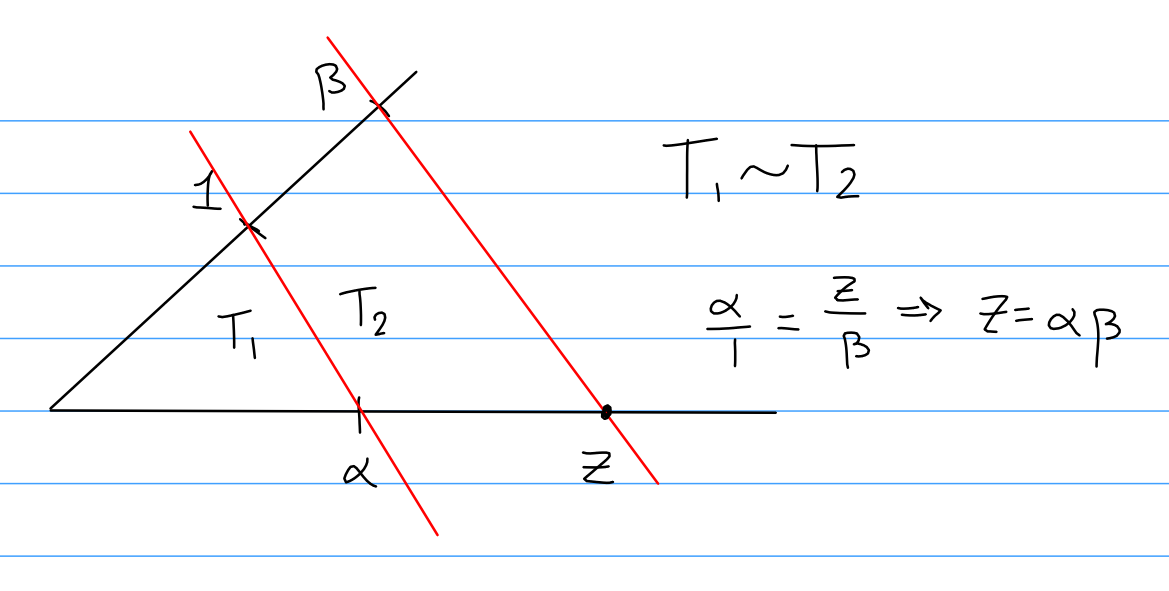 β
1
T₁ ~ T₂
T₁
T₂
α/1 = z/β ⇒ z = αβ
α
z